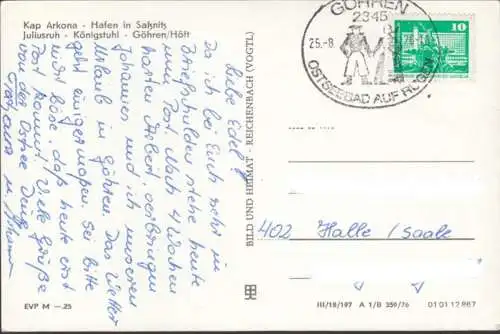 Kap Arkona - Hafen in Saßnitz
Juliusruh - Königstuhl - Göhren/Höft
GÖHREN
2345
25.-8.
76
OSTSEEBAD AUF RÜGEN
10
Liebe Edel
Da ich bei Euch sehr in
Briefschulden stehe heute
eine Post. Nach 4 Wochen
harter Arbeit, verbringen
Johannes und ich unseren
Urlaub in Göhren. Das Wetter
geht einigermaßen. Sei bitte
nicht böse, daß heute erst
Post kommt. Viele Grüße
von der Ostsee Deine
BILD UND HEIMAT - REICHENBACH (VOGTL)
402 Halle / Saale
EVP M -.25
III/18/197 A 1/B 359/76 01 01 12 867